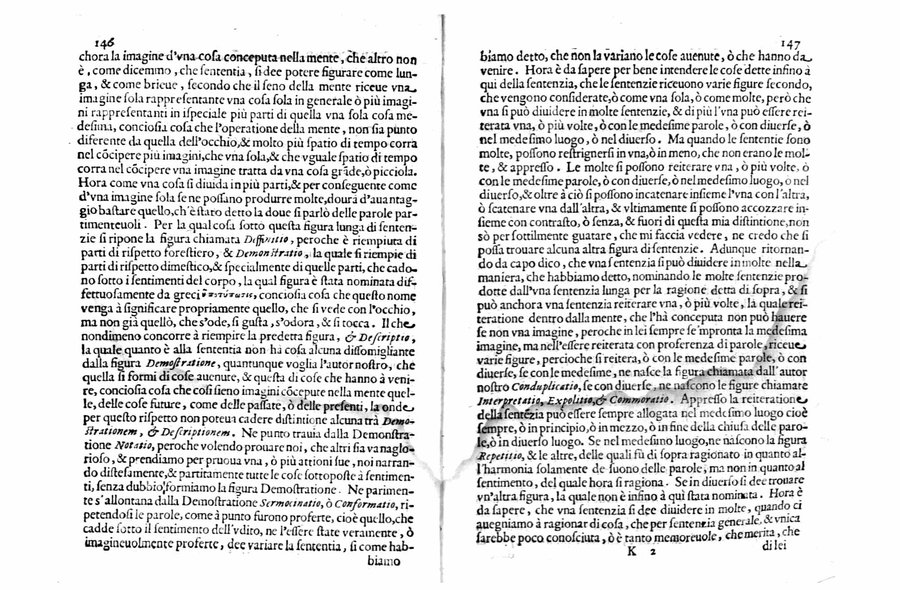 146
chora la imagine d'vna cosa conceputa nella mente, che altro non
è, come dicemmo, che sententia, si dee potere figurare come lun-
ga, & come brieue, secondo che il seno della mente riceue vna
imagine sola rappresentante vna cosa sola in generale ò più imagi-
ni rappresentanti in ispeciale più parti di quella vna cosa sola me-
desima, conciosia cosa che l'operatione della mente, non sia punto
diferente da quella dell'occhio, & molto più spatio di tempo corra
nel cōcipere più imagini, che vna sola, & che vguale spatio di tempo
corra nel cōcipere vna imagine tratta da vna cosa grāde, ò picciola.
Hora come vna cosa si diuida in più parti, & per conseguente come
d'vna imagine sola se ne possano produrre molte, dourà d'auantag-
gio bastare quello, ch'è stato detto la doue si parlò delle parole par-
timenteuoli. Per la qual cosa sotto questa figura lunga di senten-
zie si ripone la figura chiamata Diffinitio, peroche è riempiuta di
parti di rispetto forestiero, & Demonstratio, la quale si riempie di
parti di rispetto dimestico, & specialmente di quelle parti, che cado-
no sotto i sentimenti del corpo, la qual figura è stata nominata dif-
fettuosamente da greci conciosia cosa che questo nome
venga à significare propriamente quello, che si vede con l'occhio,
ma non già quellò, che s'ode, si gusta, s'odora, & si tocca. Il che
nondimeno concorre à riempire la predetta figura, & Descriptio,
la quale quanto è alla sententia non hà cosa alcuna dissomigliante
dalla figura Demostratione, quantunque voglia l'autor nostro, che
quella si formi di cose auenute, & questa di cose che hanno à veni-
re, conciosia cosa che così sieno imagini cōcepute nella mente quel-
le, delle cose future, come delle passate, ò delle presenti, la onde
per questo rispetto non poteua cadere distintione alcuna trà Demo-
strationem, & Descriptionem. Ne punto trauia dalla Demonstra-
tione Notatio, peroche volendo prouare noi, che altri sia vanaglo-
rioso, & prendiamo per pruoua vna, ò più attioni sue, noi narran-
do distesamente, & partitamente tutte le cose sottoposte à sentimen-
ti, senza dubbio formiamo la figura Demostratione. Ne parimen-
te s'allontana dalla Demostratione Sermocinatio, ò Conformatio, ri-
petendosi le parole, come à punto furono proferte, cioè quello, che
cadde sotto il sentimento dell'vdito, ne l'essere state veramente, ò
imagineuolmente proferte, dee variare la sententia, si come hab-
biamo
147
biamo detto, che non la variano le cose auenute, ò che hanno da
venire. Hora è da sapere per bene intendere le cose dette infino à
qui della sentenzia, che le sentenzie riceuono varie figure secondo,
che vengono considerate, ò come vna sola, ò come molte, però che
vna si può diuidere in molte sentenzie, & di più l'vna può essere rei-
terata vna, ò più volte, ò con le medesime parole, ò con diuerse, ò
nel medesimo luogo, ò nel diuerso. Ma quando le sententie sono
molte, possono restrignersi in vna, ò in meno, che non erano le mol-
te, & appresso. Le molte si possono reiterare vna, ò più volte, ò
con le medesime parole, ò con diuerse, ò nel medesimo luogo, ò nel
diuerso, & oltre à ciò si possono incatenare insieme l'vna con l'altra,
ò scatenare vna dall'altra, & vltimamente si possono accozzare in-
sieme con contrasto, ò senza, & fuori di questa mia distinione, non
sò per sottilmente guatare, che mi faccia vedere, ne credo che si
possa trouare alcuna altra figura di sentenzie. Adunque ritornan-
do da capo dico, che vna sentenzia si può diuidere in molte nella
maniera, che habbiamo detto, nominando le molte sentenzie pro-
dotte dall'vna sentenzia lunga per la ragione detta di sopra, & si
può anchora vna sentenzia reiterare vna, ò più volte, la quale rei-
teratione dentro dalla mente, che l'hà conceputa non può hauere
se non vna imagine, peroche in lei sempre se'mpronta la medesima
imagine, ma nell'essere reiterata con proferenza di parole, riceue
varie figure, percioche si reitera, ò con le medesime parole, ò con
diuerse, se con le medesime, ne nasce la figura chiamata dall'autor
nostro Conduplicatio, se con diuerse, ne nascono le figure chiamare
Interpretatio, Expolitio, & Commoratio. Appresso la reiteratione
della sentēzia può essere sempre allogata nel medesimo luogo cioè
sempre, ò in principio, ò in mezzo, ò in fine della chiusa delle paro-
le, ò in diuerso luogo. Se nel medesimo luogo, ne nascono la figura
Repetitio, & le altre, delle quali fù di sopra ragionato in quanto al-
l'harmonia solamente de suono delle parole, ma non in quanto al
sentimento, del quale hora si ragiona. Se in diuerso si dee trouare
vn'altra figura, la quale non è infino a qui stata nominata. Hora è
da sapere, che vna sentenzia si dee diuidere in molte, quando ci
auegniamo à ragionar di cosa, che per sentenzia generale, & vnica
sarebbe poco conosciuta, ò è tanto memoreuole, che merita, che
K 2
di lei